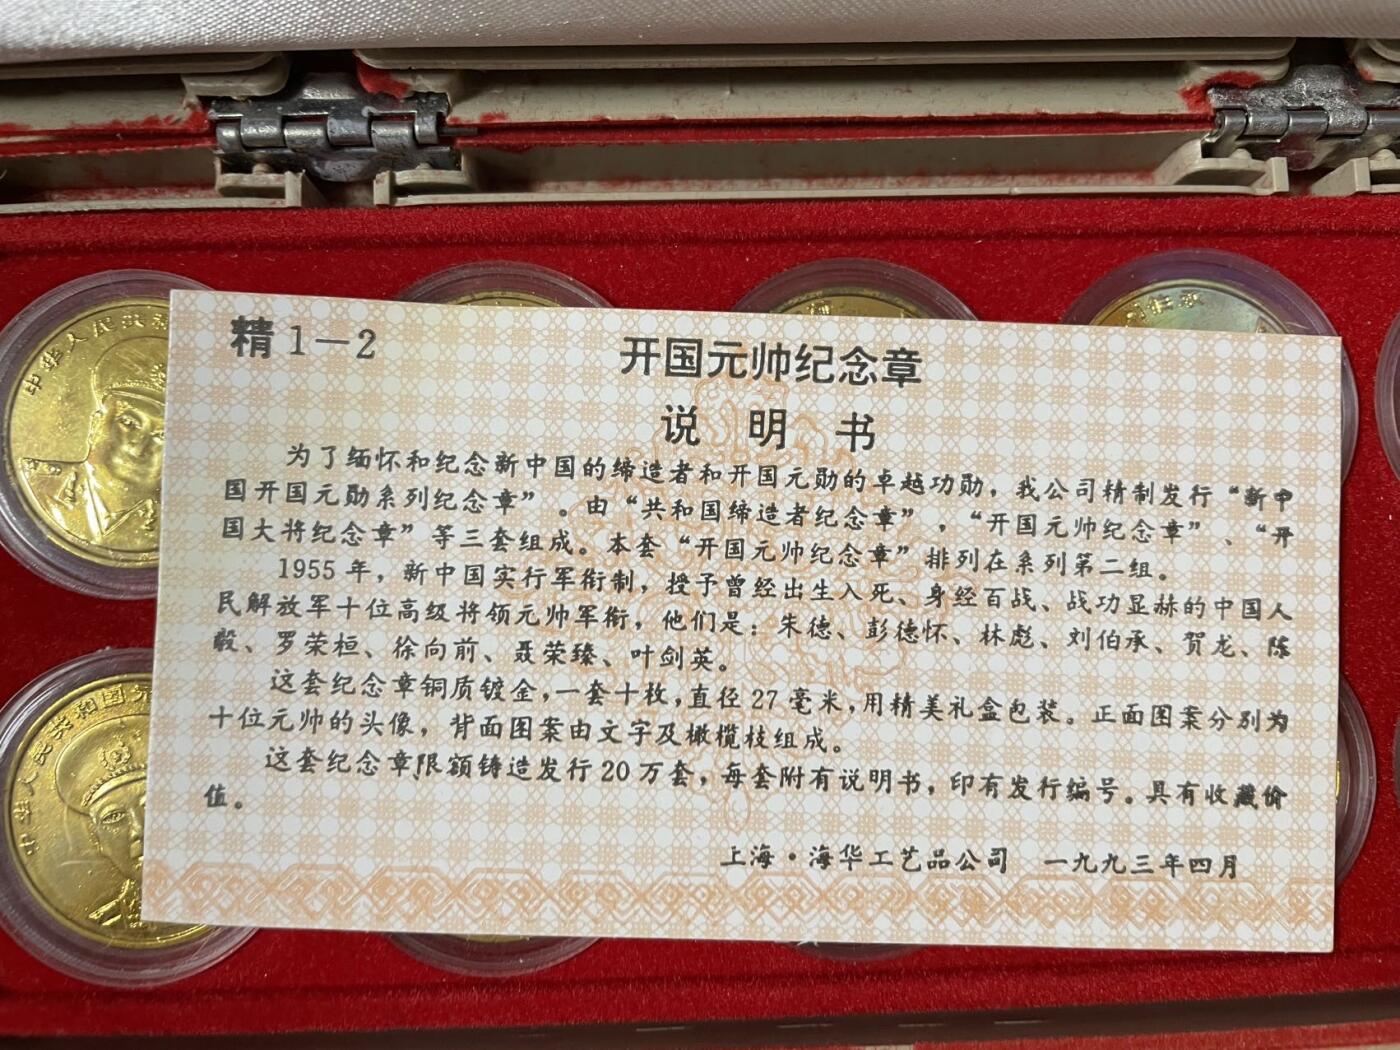 精1—2
开国元帅纪念章
说明书
为了缅怀和纪念新中国的缔造者和开国元勋的卓越功勋，我公司精制发行“新中
国开国元勋系列纪念章”。由“共和国缔造者纪念章”，“开国元帅纪念章”、“开
国大将纪念章”等三套组成。本套“开国元帅纪念章”排列在系列第二组。
1955年，新中国实行军衔制，授予曾经出生入死、身经百战、战功显赫的中国人
民解放军十位高级将领元帅军衔，他们是：朱德、彭德怀、林彪、刘伯承、贺龙、陈
毅、罗荣桓、徐向前、聂荣臻、叶剑英。
这套纪念章铜质镀金，一套十枚，直径27毫米，用精美礼盒包装。正面图案分别为
十位元帅的头像，背面图案由文字及橄榄枝组成。
这套纪念章限额铸造发行20万套，每套附有说明书，印有发行编号。具有收藏价
值。
上海·海华工艺品公司 一九九三年四月
中华人民共和
中华人民共和国元